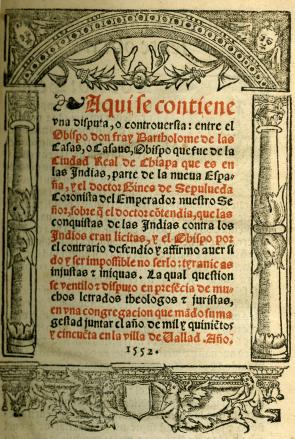 Aqui se contiene
vna disputa, o controuersia: entre el
Obispo don fray Bartholome de las
Casas, o Casaus, Obispo que fue de la
Ciudad Real de Chiapa que es en
las Indias, parte de la nueua Espa-
ña, y el doctor Gines de Sepulueda
Coronista del Emperador nuestro Se
ñor, sobre q̃ el doctor cõtendia, que las
conquistas de las Indias contra los
Indios eran licitas, y el Obispo por
el contrario defendio y affirmo auer si
do y ser impossible no serlo: tyranicas
injustas & iniquas. La qual question
se ventilo & disputo en presẽcia de mu
chos letrados theologos & juristas,
en vna congregacion que mãdo su ma
gestad juntar el año de mil y quiniẽtos
y cincuẽta en la villa de Vallad. Año.
1552.